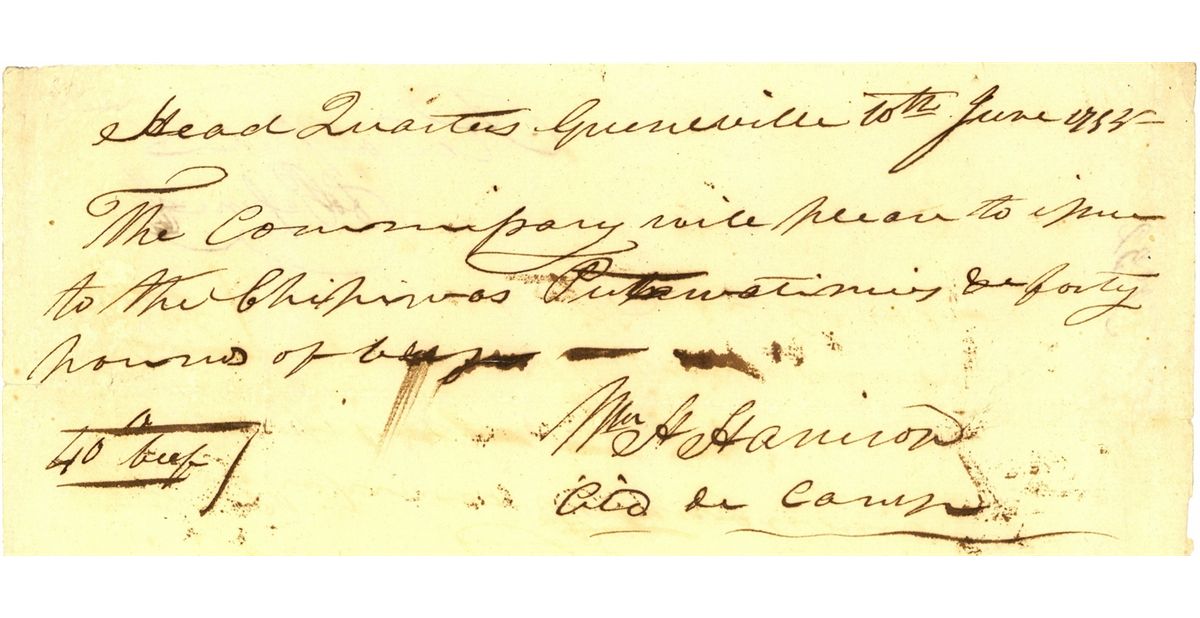 Head Quarters Greeneville 10th June 1795
The Commissary will please to issue
to the Chipiwas Putawatimies &c forty
pounds of beef
40 lb beef
Wm H Harrison
Aid de Camp